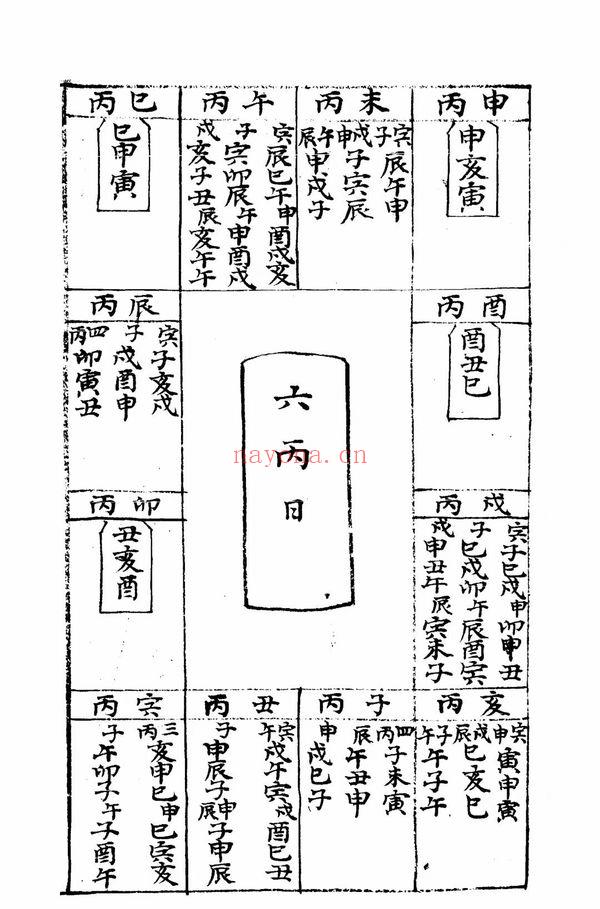 丙巳
巳申寅
丙午
寅辰巳午申酉戌亥
子寅卯辰午申酉戌
戌亥子丑辰亥午午
丙未
寅辰午申
子戌子寅辰
申午申戌子
辰
丙申
申亥寅
丙辰
寅子亥戌
子戌酉申
四丙卯寅丑
丙酉
酉丑巳
六丙日
nayona.cn
丙卯
丑亥酉
丙戌
寅子巳戌申卯申丑
子巳戌卯午辰酉寅
戌申丑午辰寅未子
丙寅
三丙亥申巳申巳寅亥
子午卯子午子酉午
丙丑
寅午戌午寅戌酉巳丑
子申辰子申子申辰
辰
丙子
四丙子未寅
辰午丑申
申戌巳子
丙亥
寅申寅申寅
戌辰巳亥巳
子午午子午